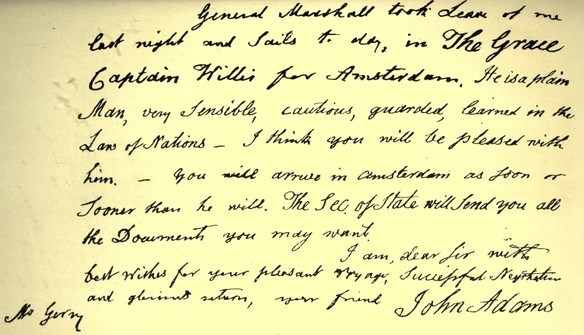 General Marshall took Leave of me
last night and Sails to day, in The Grace
Captain Willis for Amsterdam. He is a plain
Man, very Sensible, cautious, guarded, learned in the
Law of Nations — I think you will be pleased with
him. — you will arrive in amsterdam as soon or
Sooner than he will. The Sec. of State will Send you all
the Documents you may want.
I am, dear Sir with
best wishes for your pleasant Voyage, Successful Negotiation
and glorious return, your friend John Adams
Mr Gerry